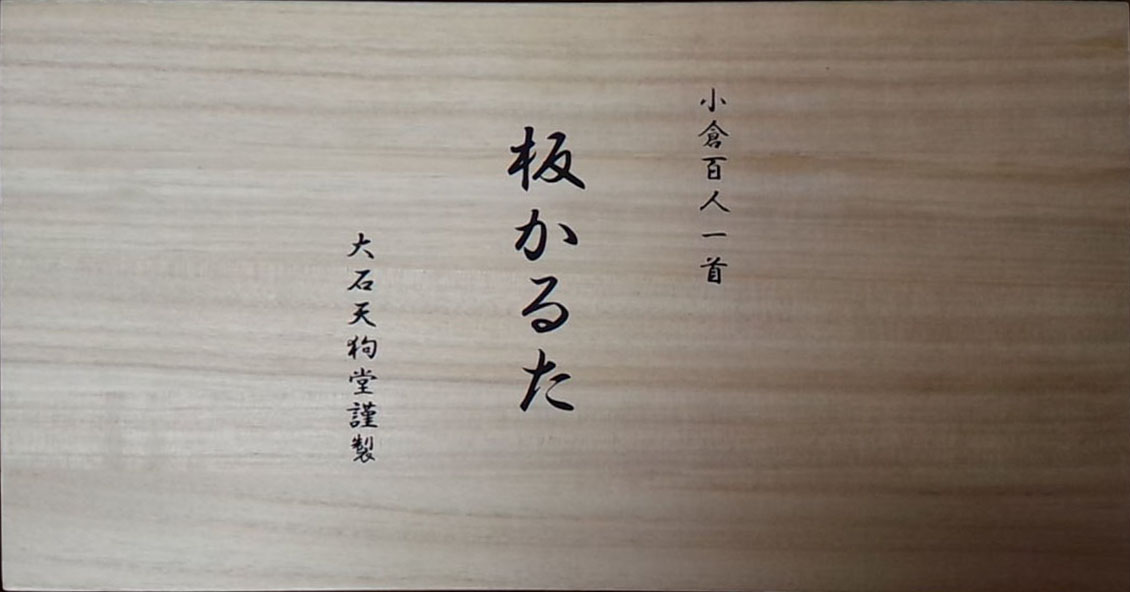 小倉百人一首
板かるた
大石天狗堂謹製